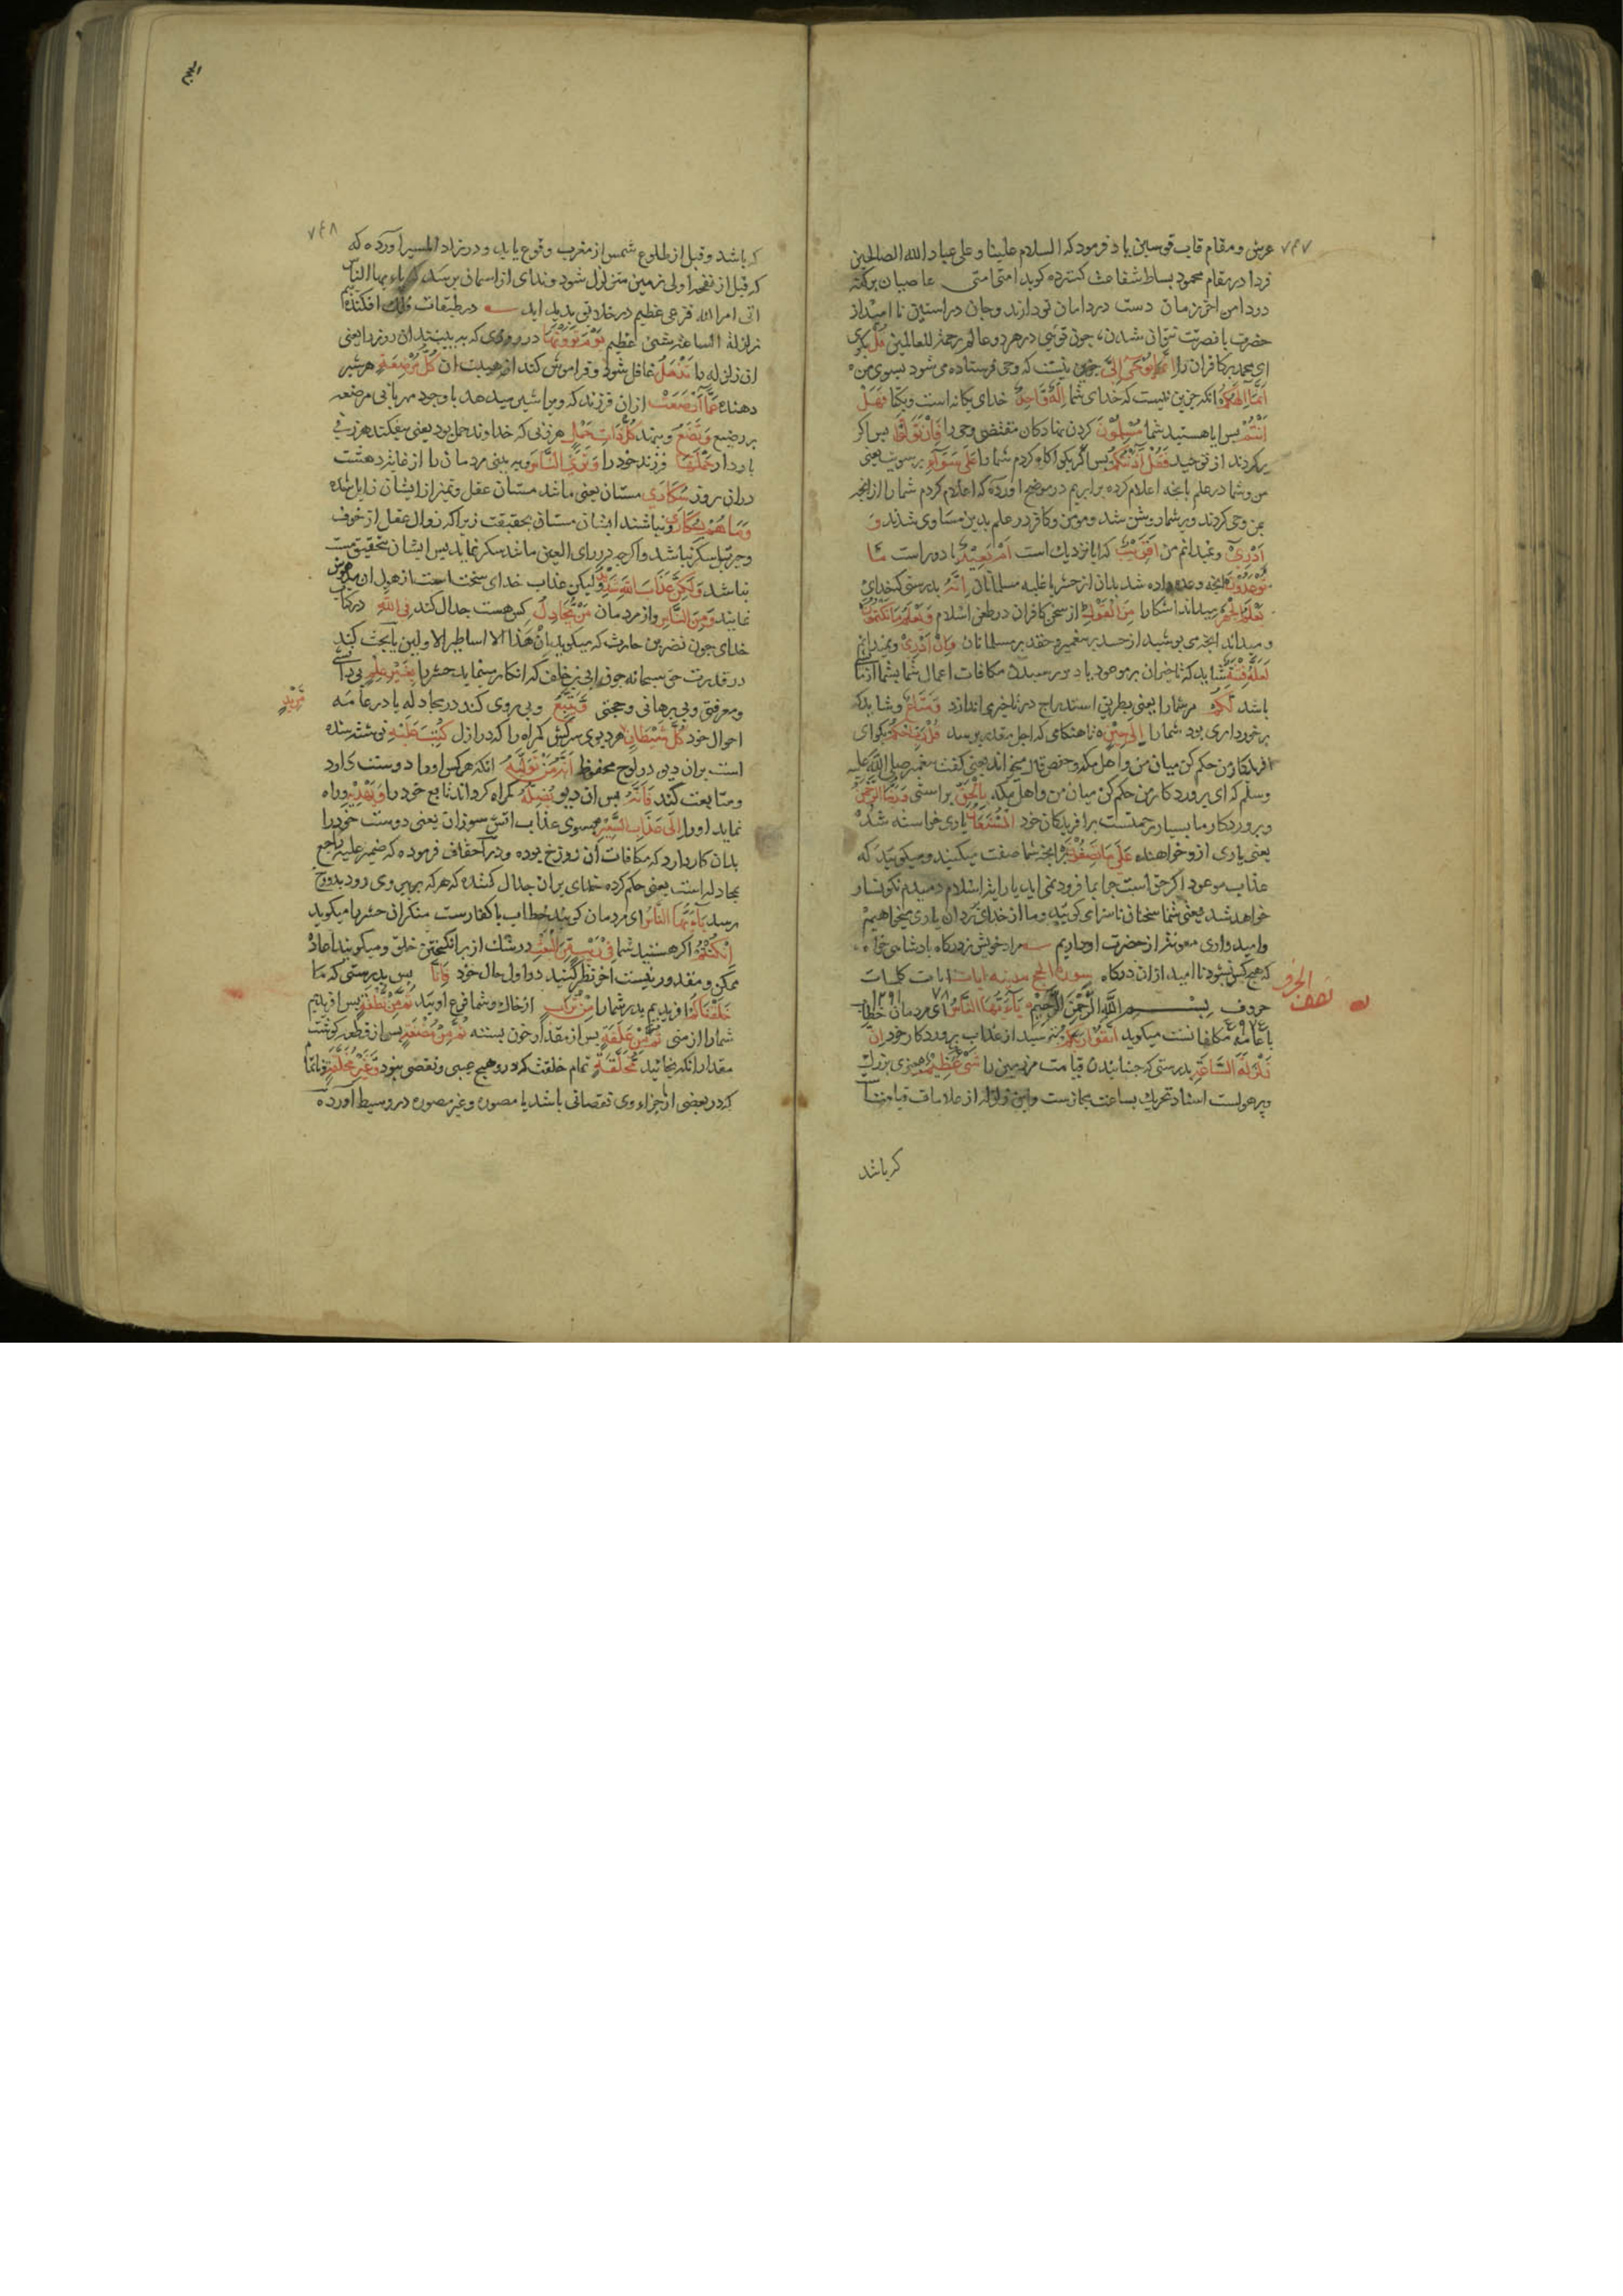 ٧٤٧
عرش ومقام قاب قوسین یاد فرمود که السلام علینا و علی عباد الله الصالحین
فردا در مقام محمود بساط شفاعت کسترده کوید امتی امتی عاصیان پرکنه
در دامن اخر زمان دست در دامان تو دارند وجان در استین نا امید از
حضرت با نصرت نتوان شدن، چون تویی در هر دو عالم رحمة للعالمین قل بکوی
ای محمد مر کافران را انما یوحی الی جزین نیست که وحی فرستاده می شود بسوی من
انما الهکم انکه جزین نیست که خدای شما اله واحد خدای یکانه است ویکتا فهل
انتم پس ایا هستید شما مسلمون کردن نهادکان مقتضی وحی را فان تولوا پس اکر
برکردند از توحید فقل آذنتکم پس بکو اکاه کردم شما را علی سوآء برسویت یعنی
من وشما در علم بانچه اعلام کرده برابریم در موضح اورده که اعلام کردم شما را از انچه
بمن وحی کردند وبر شما روشن شد ومومن وکافر در علم بدین مساوی شدند و
ادری و نمیدانم من اقریب که ایا نزدیك است ام بعید یا دور است ما
توعدون انچه وعده داده شد بدان از حشر یا غلبه مسلمانان انه بدرستی که خدای
یعلم الجهر میداند اشکارا من القول از سخن کافران در طعن اسلام ویعلم ما تکتمون
و میداند انچه می پوشید از حسد بر پیغمبر وحقد بر مسلمانان وان ادری ونمیدانم
لعله فتنة شاید که تاخیران بر موعود یا دیر رسیدن مکافات اعمال شما بشما ازمایش
باشد لکم مر شما را یعنی بطریق استدراج در تاخیر می اندازد ومتاع وشاید که
برخورداری بود شما را الی حین تا هنکامی که اجل مقدر برسد قل رب احکم بکو ای
افریدکار من حکم کن میان من واهل مکه وحفص قال میخواند یعنی کفت پیغمبر صلی الله علیه
وسلم که ای پروردکار من حکم کن میان من واهل مکه بالحق براستی وربنا الرحمن
وپروردکار ما بسیار رحمتست بر افریدکان خود المستعان یاری خواسته شده
یعنی یاری ازو خواهنده علی ما تصفون بر انچه شما صفت میکنید ومیکویید که
عذاب موعود اکر حق است چرا بما فرود نمی اید یا رایت اسلام دمبدم نکونسار
خواهد شد یعنی شما سخنان ناسزا می کویید وما از خدای بر ان یاری میخواهیم
وامیدواری معونت از حضرت او داریم مراد خویش ز درکاه پادشاهی خواه
که هیچ کس نشود نا امید از ان درکاه سورة الحج مدنیه ایات ایات کلمات
٧٨
الجزء نصف
حروف بســـم الله الرحمن الرحیم یآ ایها الناس ای مردمان خطاب
با عامه مکلفانست میکوید اتقوا ربکم بترسید از عذاب پروردکار خود ان
زلزلة الساعة بدرستی که جنبانیدن قیامت مر زمین را شیء عظیم چیزی بزرك
وپر هولست اسناد تحریك بساعت مجازست واین زلزله از علامات قیامت
که باشد
الحج
٧٤٨
که باشد وقبل از طلوع شمس از مغرب وقوع یابد، و در زاد المسیر آورده که
که قبل از نفخه اولی زمین متزلزل شود وندای از اسمان برسد که یا ایها الناس
اتی امر الله فزعی عظیم در خلایق پدید اید در طبقات فلك افکنده
زلزلة الساعة شیء عظیم یوم ترونها در روزی که ببینید ان روز را یعنی
ان زلزله را تذهل غافل شود وفراموش کند از هیبت ان کل مرضعة هر شیر
دهنده عما ارضعت از ان فرزند که ویرا شیر میدهد با وجود مهربانی مرضعه
بر رضیع وتضع وبنهد کل ذات حمل هر زنی که خداوند حمل بود یعنی بیفکند هر زن
باردار حملها فرزند خود را وتری الناس وببینی مردمان را از غایت دهشت
در ان روز سکاری مستان یعنی مانند مستان عقل وتمیز از ایشان زایل شده
وما هم بسکاری ونباشند ایشان مستان بحقیقت زیرا که زوال عقل از خوف
وحیرت سکر نباشد واکرچه در رای العین مانند سکر نماید پس ایشان بتحقیق مست
نباشند ولکن عذاب الله شدید ولیکن عذاب خدای سخت است از هول ان مدهوش
نمایند ومن الناس واز مردمان من یجادل کس هست جدال کند فی الله در کتاب
خدای چون نضر بن حارث که میکوید ان هذا الا اساطیر الاولین یا بحث کند
در قدرت حق سبحانه چون ابی بن خلف که انکار مینماید حشر را بغیر علم بی دانشی
ومعرفتی وبی برهانی وحجتی ویتبع وپی روی کند در مجادله یا در عامه
احوال خود کل شیطان هر دیوی سرکش کمراه را که در ازل کتب علیه نوشته شده
مرید
است بر ان دیو در لوح محفوظ انه من تولاه انکه هر کس او را دوست دارد
ومتابعت کند فانه پس ان دیو یضله کمراه کرداند تابع خود را ویهدیه وراه
نماید اورا الی عذاب السعیر بسوی عذاب اتش سوزان یعنی دوست خود را
بدان کار دارد که مکافات ان دوزخ بوده ودر احقاف فرموده که ضمیر علیه راجع
بمجادله است یعنی حکم کرده خدای بر ان جدال کننده که هر که پی وی رود بدوزخ
رسد یآ ایها الناس ای مردمان کویند خطاب با کفارست منکران حشر را میکوید
ان کنتم اکر هستید شما فی ریب من البعث در شك از برانکیختن خلق ومیکویید اعاده
ممکن ومقدور نیست اخر نظر کنید در اول حال خود فانا پس بدرستی که ما
خلقناکم افریدیم پدر شما را من تراب از خاك وشما فرع اویید ثم من نطفة پس افریدیم
شما را از منی ثم من علقة پس از مقدار خون بسته ثم من مضغة پس از قطعه کوشت
مقدار انکه بخایند مخلقة تمام خلقت که درو هیچ عیبی ونقصی نبود وغیر مخلقة وناتمام
که در بعضی از اجزاء وی نقصانی باشد یا مصوره وغیر مصوره در وسیط آورده